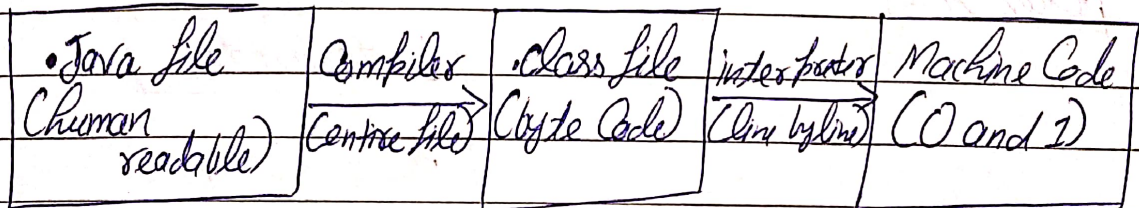 .Java file
(human
readable)
Compiler
(entire file)
.class file
(byte Code)
interpreter
(line by line)
Machine Code
(0 and 1)